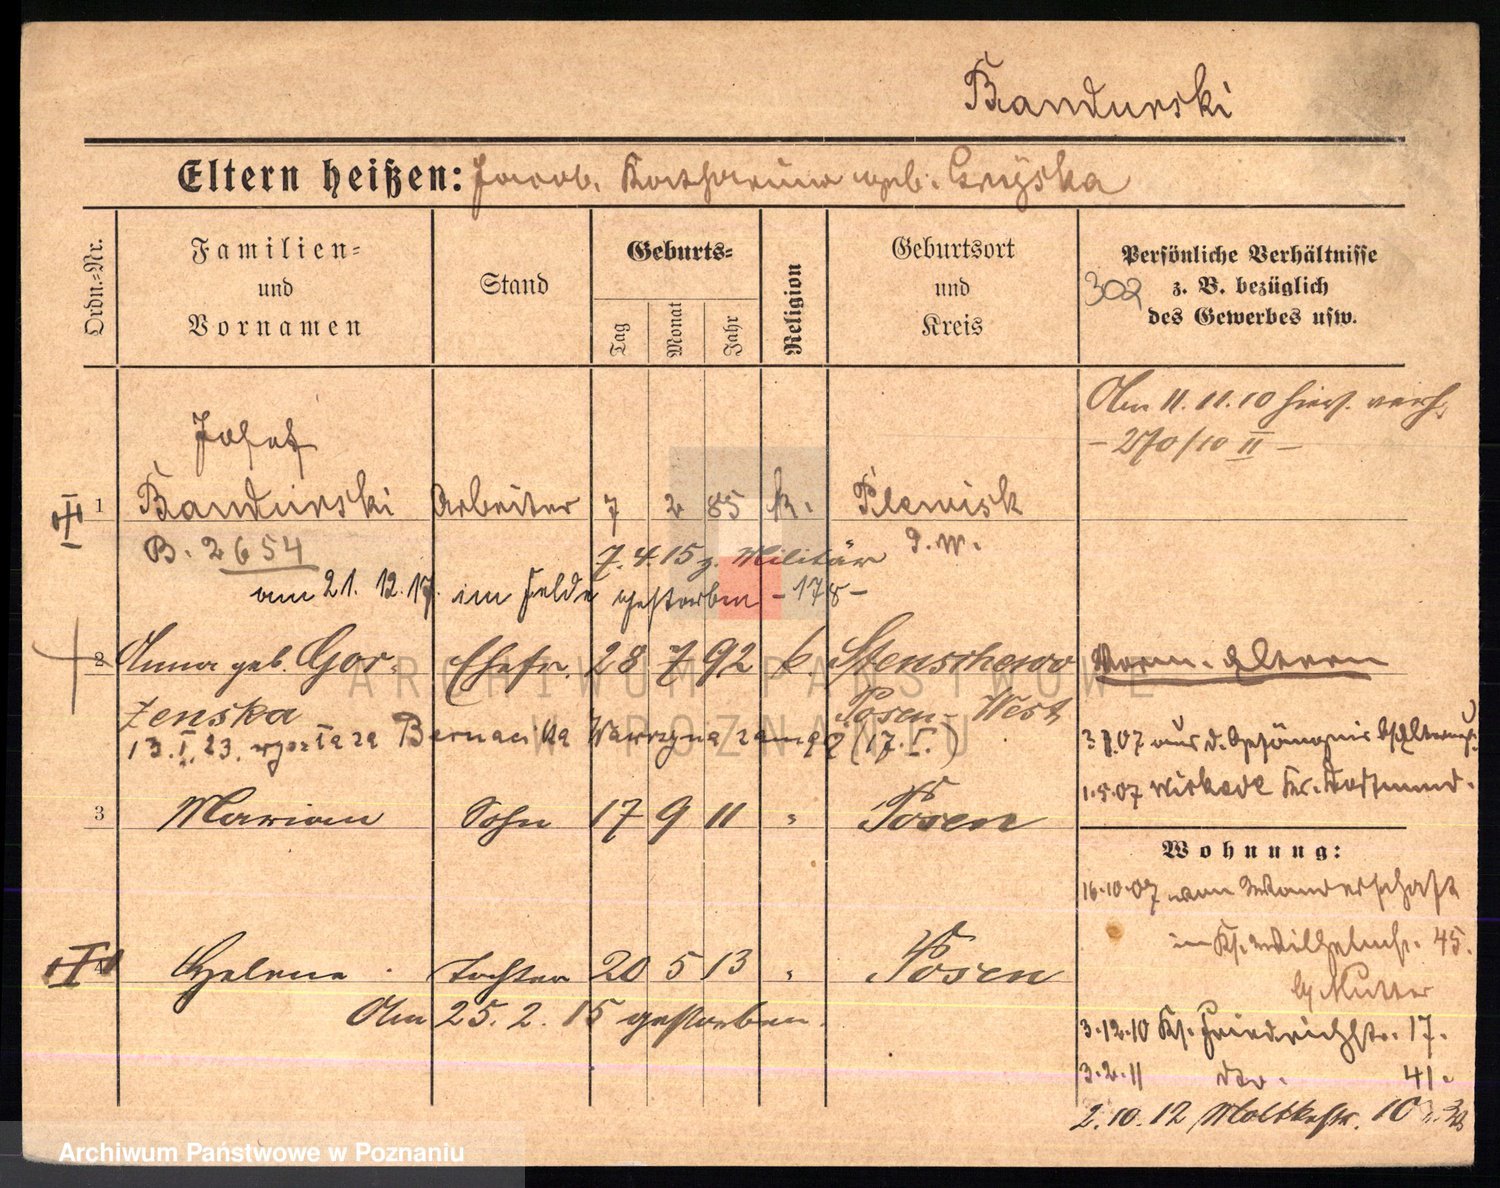 Bandurski
Eltern heißen: Jacob. Katharina geb. Gryska
Ordn.-Nr.
Familien-
und
Vornamen
Stand
Geburts-
Tag
Monat
Jahr
Religion
Geburtsort
und
Kreis
Persönliche Verhältnisse
z. B. bezüglich
des Gewerbes usw.
302
Am 11.11.10 hier verh.
- 270/10 II -
Josef
1 Bandurski Arbeiter 7 2 85 k. Plewisk
B. 2654 P. W.
7.4.15 z. Militär
am 21. 12. 17. im Felde gestorben - 178 -
2 Anna geb. Gor- Ehefr. 28 7 92 k. Stenschewo
zenska Posen-West
13.I.23. wyszła za Bernacika Wawrzyna zamąż (17.I.)
3 Marian Sohn 17 9 11 " Posen
4 Helene Tochter 20 5 13 " Posen
Am 25. 2. 15 gestorben.
Vorm. Eltern
07 aus d. Gefängnis
1.5.07 Kr. Dortmund.
Wohnung:
16.10.07 von Wanderschaft
in Kl. Wilhelmstr. 45.
b/ Mutter
3.12.10 Kl. Friedrichstr. 17.
3.2.11 dto. 41.
2.10.12 Moltkestr. 10
ARCHIWUM PAŃSTWOWE
W POZNANIU
Archiwum Państwowe w Poznaniu